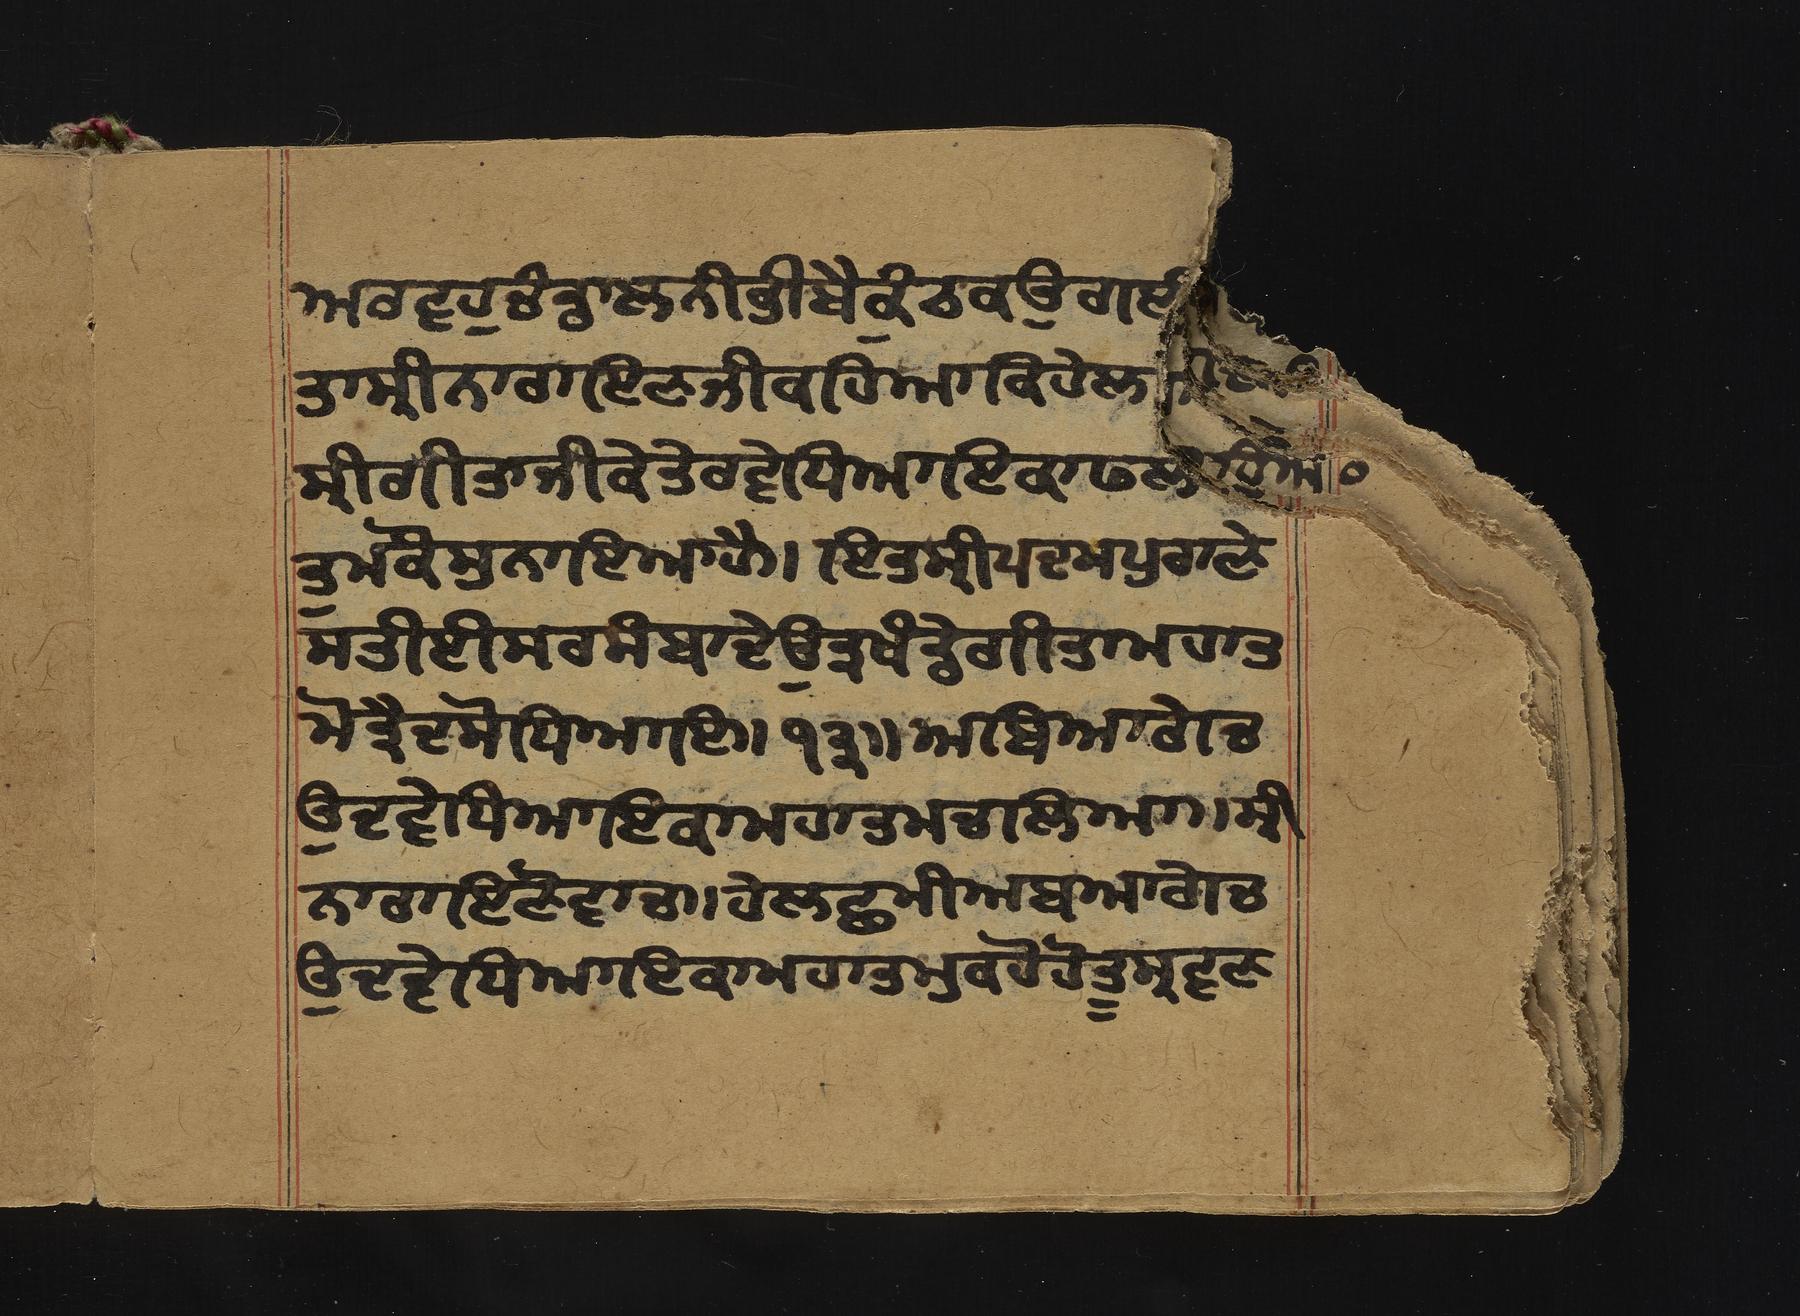 ਅਰਵਹੁਚੰਡਾਲਨੀਭੀਬੈਕੁੰਠਕਉਗਈ
ਤਾਸ੍ਰੀਨਾਰਾਇਣਜੀਕਹਿਆਕਿਹੇਲ
ਸ੍ਰੀਗੀਤਾਜੀਕੇਤੇਰਵੇਧਿਆਇਕਾਫਲ
ਤੁਮਕੌਸੁਨਾਇਆਹੈ। ਇਤਸ੍ਰੀਪਦਮਪੁਰਾਣੇ
ਸਤੀਈਸਰਸੰਬਾਦੇਉਤ੍ਰਖੰਡੇਗੀਤਾਮਹਾਤ
ਮੋਤ੍ਰੈਦਸੋਧਿਆਇ॥ ੧੩॥ ਆਬਿਆਗੇਚ
ਉਦਵੇਧਿਆਇਕਾਮਹਾਤਮਚਾਲਿਆ॥ ਸ੍ਰੀ
ਨਾਰਾਇਣੋਵਾਚ॥ ਹੇਲਛਮੀਅਬਆਗੇਚ
ਉਦਵੇਧਿਆਇਕਾਮਹਾਤਮੁਕਹੌਹੌਤੂਸ੍ਰਵਣ